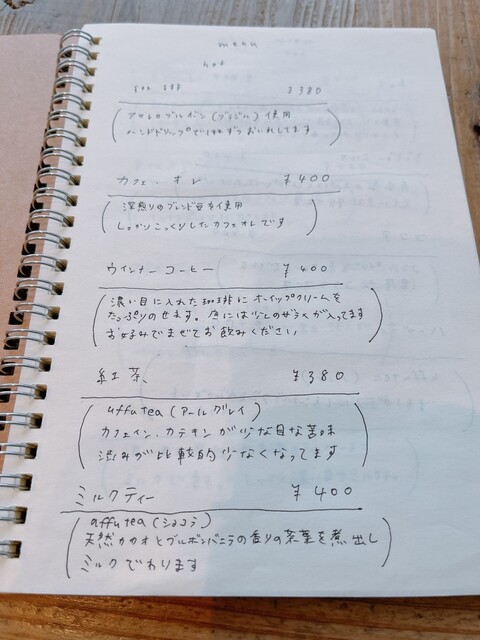 menu
hot
珈琲 ¥380
アマレロブルボン(ブラジル)使用
ハンドドリップで1杯ずつおいれしてます
カフェ・オレ ¥400
深煎りのブレンド豆を使用
しっかりこっくりしたカフェオレです
ウインナーコーヒー ¥400
濃い目に入れた珈琲にホイップクリームを
たっぷりのせます。底には少しのザラメが入ってます
お好みでまぜてお飲みください
紅茶 ¥380
uffu tea (アールグレイ)
カフェイン、カテキンが少な目な苦味
渋みが比較的少なくなってます
ミルクティー ¥400
uffu tea (ショコラ)
天然カカオとブルボンバニラの香りの茶葉を煮出し
ミルクでわります